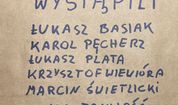 WYSTĄPILI
ŁUKASZ BASIAK
KAROL PĘCHERZ
ŁUKASZ PLATA
KRZYSZTOF WIEWIÓRA
MARCIN ŚWIETLICKI